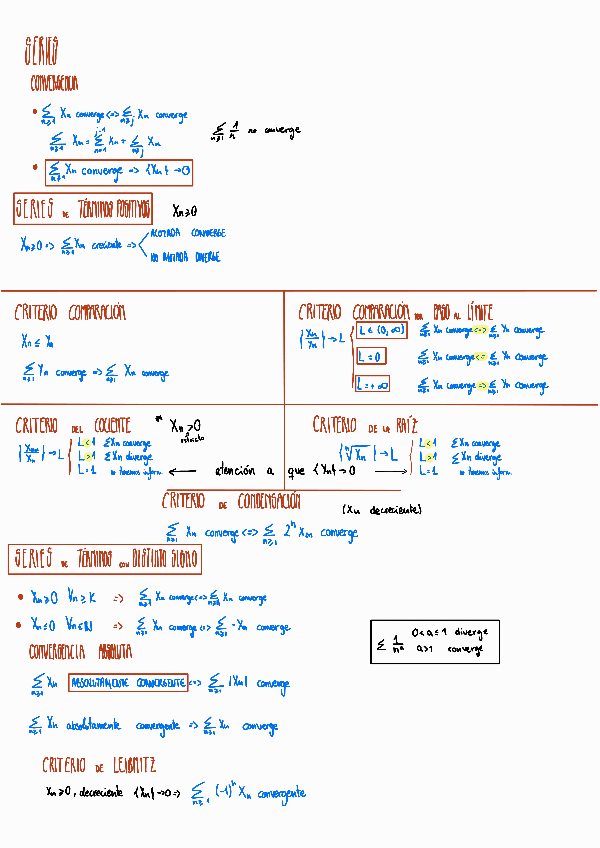 SERIES
CONVERGENCIA
• Σ_{n≥1} Xn converge <=> Σ_{n≥j} Xn converge
Σ_{n≥1} Xn = Σ_{n=1}^{j-1} Xn + Σ_{n≥j} Xn
Σ_{n≥1} 1/n no converge
• Σ_{n≥1} Xn converge => {Xn} → 0
SERIES DE TÉRMINOS POSITIVOS Xn ≥ 0
Xn ≥ 0 => Σ_{n≥1} Xn creciente =>
ACOTADA CONVERGE
NO ACOTADA DIVERGE
CRITERIO COMPARACIÓN
Xn ≤ Yn
Σ_{n≥1} Yn converge => Σ_{n≥1} Xn converge
CRITERIO COMPARACIÓN POR PASO AL LÍMITE
{Xn/Yn} → L
L ∈ (0, ∞) Σ_{n≥1} Xn converge <=> Σ_{n≥1} Yn converge
L = 0 Σ_{n≥1} Xn converge <= Σ_{n≥1} Yn converge
L = +∞ Σ_{n≥1} Xn converge => Σ_{n≥1} Yn converge
CRITERIO DEL COCIENTE * Xn > 0
estricto
{Xn+1/Xn} → L
L < 1 ΣXn converge
L > 1 ΣXn diverge
L = 1 no tenemos inform.
CRITERIO DE LA RAÍZ
{ⁿ√Xn} → L
L < 1 ΣXn converge
L > 1 ΣXn diverge
L = 1 no tenemos inform.
← atención a que {Xn} → 0 →
CRITERIO DE CONDENSACIÓN (Xn decreciente)
Σ_{n≥1} Xn converge <=> Σ_{n≥1} 2^n X_{2^n} converge
SERIES DE TÉRMINOS CON DISTINTO SIGNO
• Xn ≥ 0 ∀n ≥ K => Σ_{n≥1} Xn converge <=> Σ_{n≥k} Xn converge
• Xn ≤ 0 ∀n ∈ ℕ => Σ_{n≥1} Xn converge <=> Σ_{n≥1} -Xn converge
Σ 1/n^a 0 < a ≤ 1 diverge
a > 1 converge
CONVERGENCIA ABSOLUTA
Σ_{n≥1} Xn ABSOLUTAMENTE CONVERGENTE <=> Σ_{n≥1} |Xn| converge
Σ_{n≥1} Xn absolutamente convergente => Σ_{n≥1} Xn converge
CRITERIO DE LEIBNITZ
Xn ≥ 0, decreciente {Xn} → 0 => Σ_{n≥1} (-1)^n Xn convergente